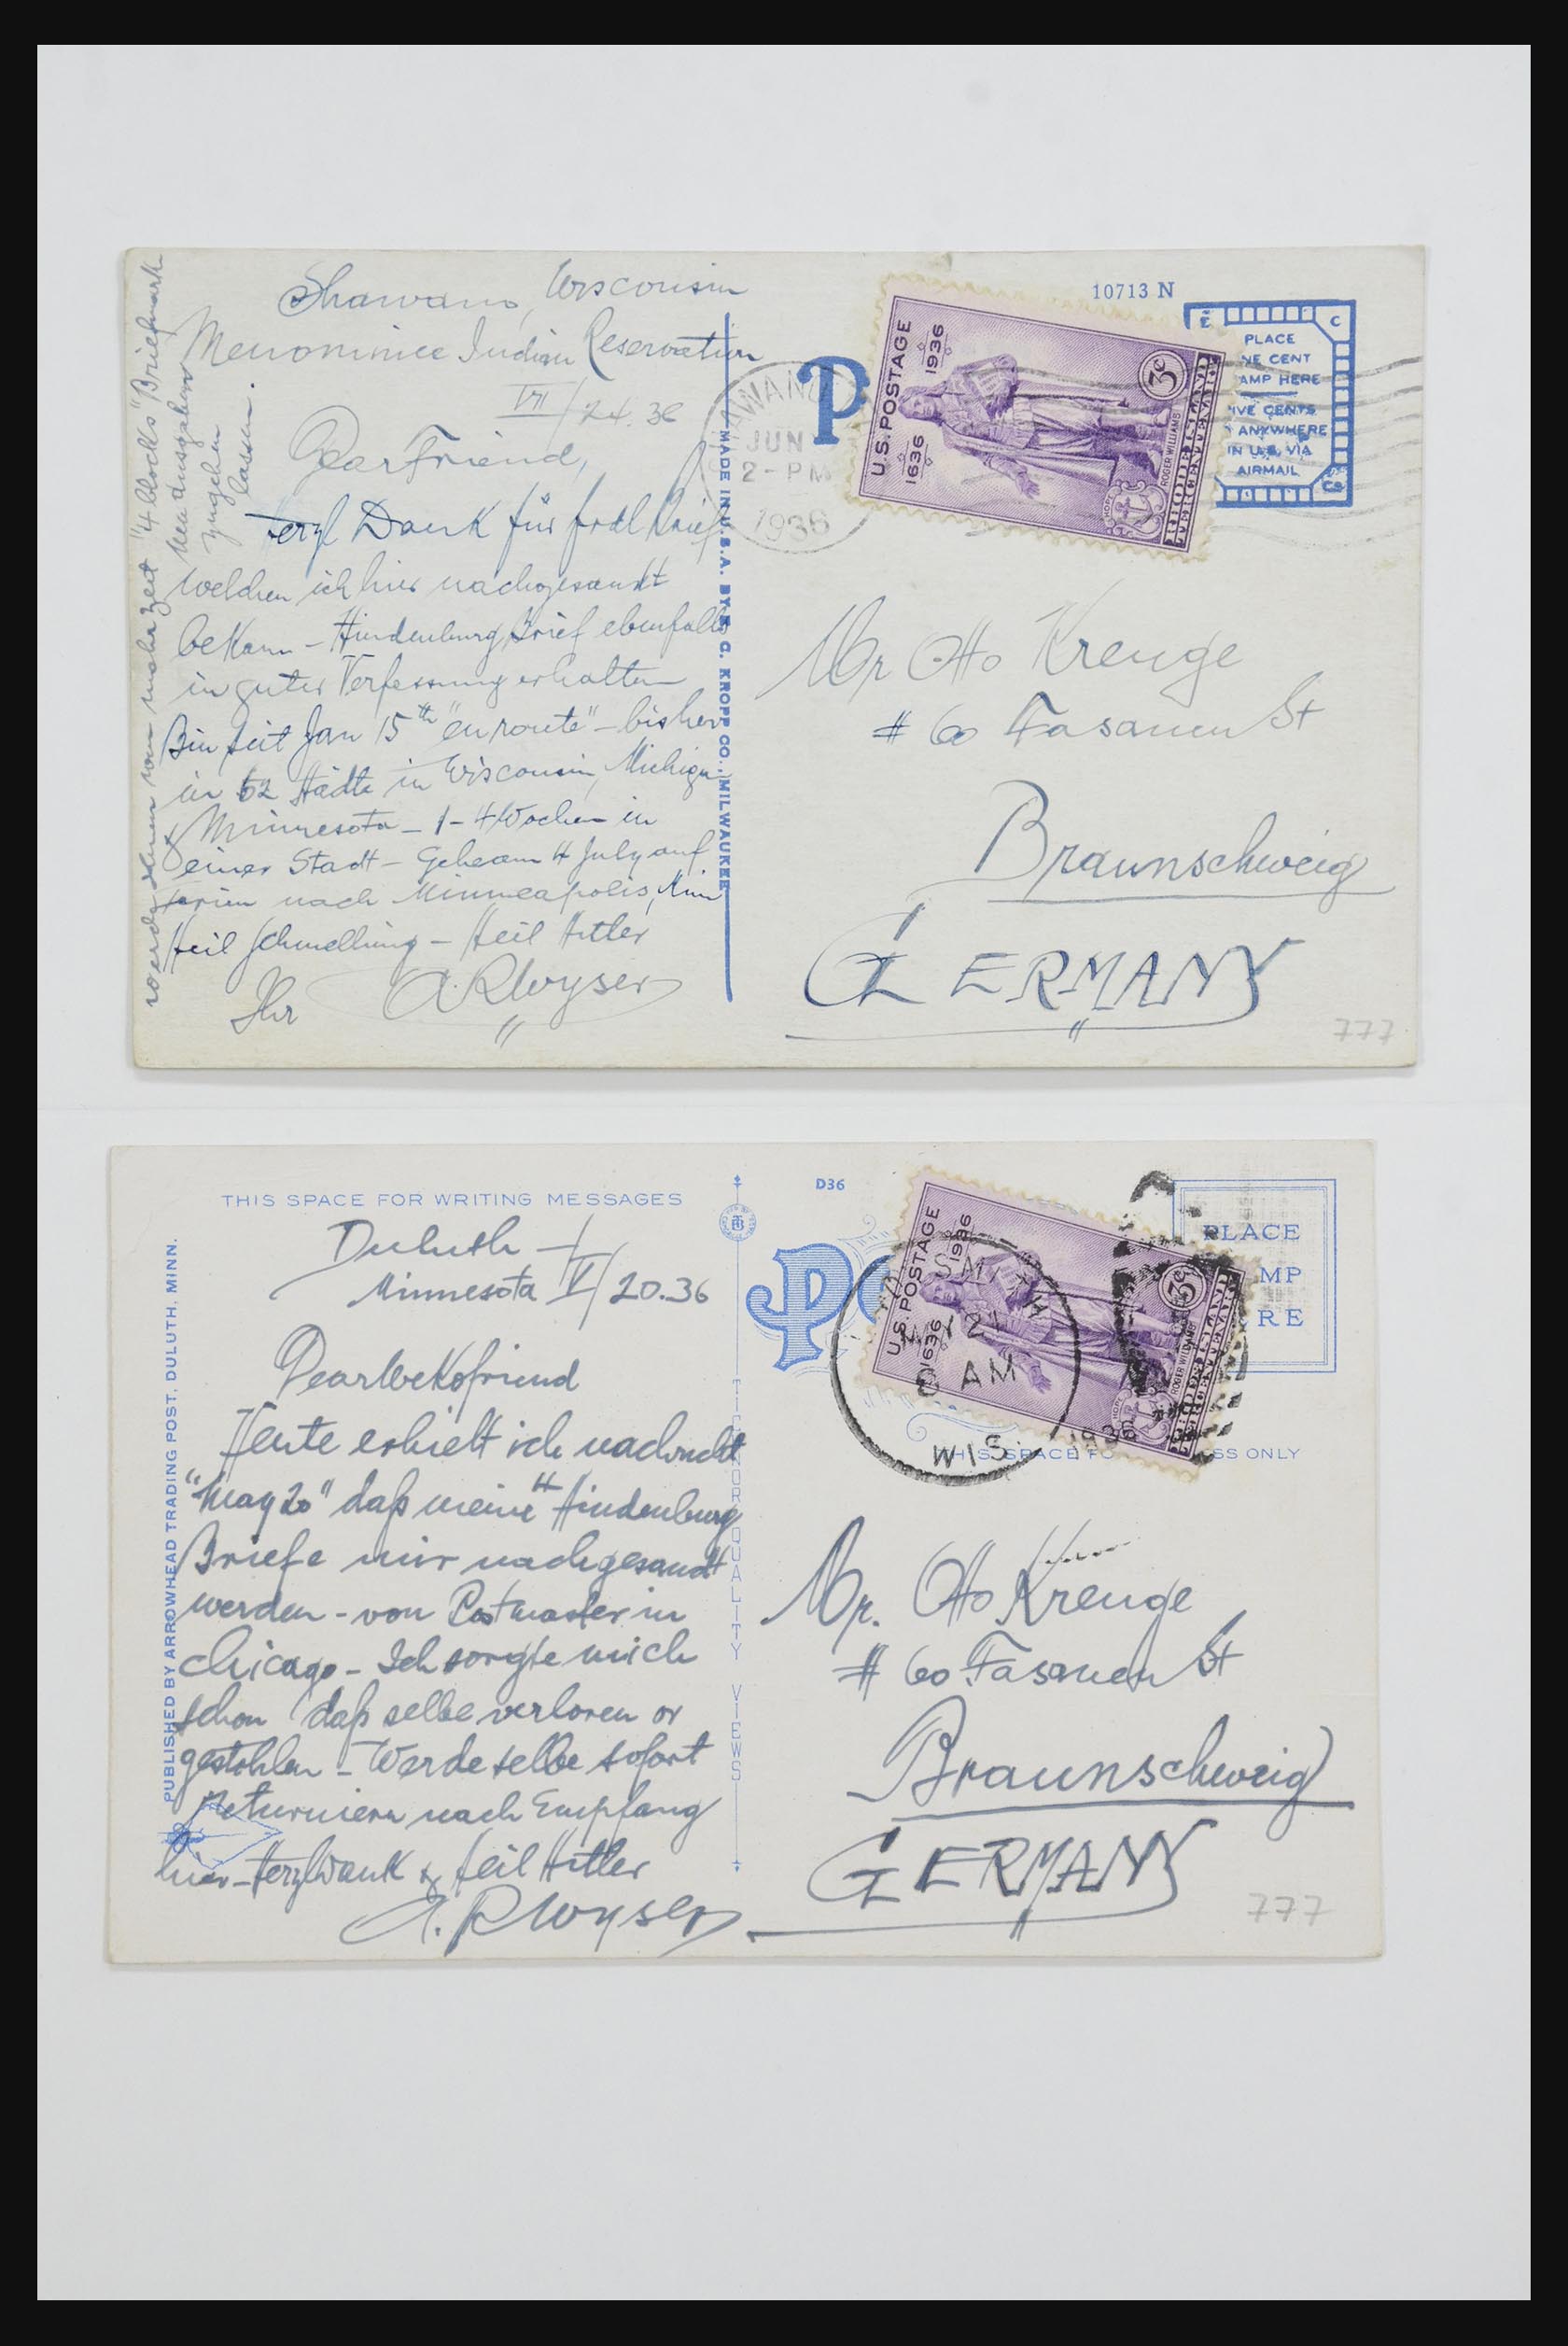 Shawano, Wisconsin
Menominee Indian Reservation
VII/24.36
Dear Friend,
Herzl Dank für frdl Brief
welchen ich hier nachgesandt
bekam – Hindenburg Brief ebenfalls
in guter Verfassung erhalten
Bin seit Jan 15th "en route" – bisher
in 52 Städte in Wisconsin, Michigan
& Minnesota – 1–4 Wochen in
einer Stadt – Gehe am 4 July auf
Ferien nach Minneapolis, Minn
Heil Schmelling – Heil Hitler
Ihr A. R. Woyser
werde Ihnen von Zeit "4 blocks" Briefmark
Neu Ausgaben
zugehen
lassen.
MADE IN U.S.A. BY E. C. KROPP CO., MILWAUKEE
10713 N
P
AWANO
JUN
2-PM
1936
U.S. POSTAGE
1636
1936
3c
ROGER WILLIAMS
HOPE
RHODE ISLAND
TERCENTENARY
E C
PLACE
NE CENT
AMP HERE
IVE CENTS
ANYWHERE
IN U.S. VIA
AIRMAIL
Co
Mr Otto Krenge
# 60 Fasanen St
Braunschweig
GERMANY
777
THIS SPACE FOR WRITING MESSAGES
Duluth –
Minnesota V/20.36
Dear Wekofriend
Heute erhielt ich nachricht
"May 20" daß meine Hindenburg
Briefe mir nachgesandt
werden – von Postmaster in
Chicago – Ich sorgte mich
schon daß selbe verloren or
gestohlen – Werde selbe sofort
returniern nach Empfang
hier – Herzl Dank & Heil Hitler
A. R. Woyser
PUBLISHED BY ARROWHEAD TRADING POST, DULUTH, MINN.
TICHNOR QUALITY VIEWS
D36
PO
MY 21
8 AM
1936
WIS.
U.S. POSTAGE
1636
1936
3c
ROGER WILLIAMS
HOPE
RHODE ISLAND
TERCENTENARY
PLACE
MP
RE
THIS SPACE FO SS ONLY
Mr. Otto Krenge
# 60 Fasanen St
Braunschweig
GERMANY
777